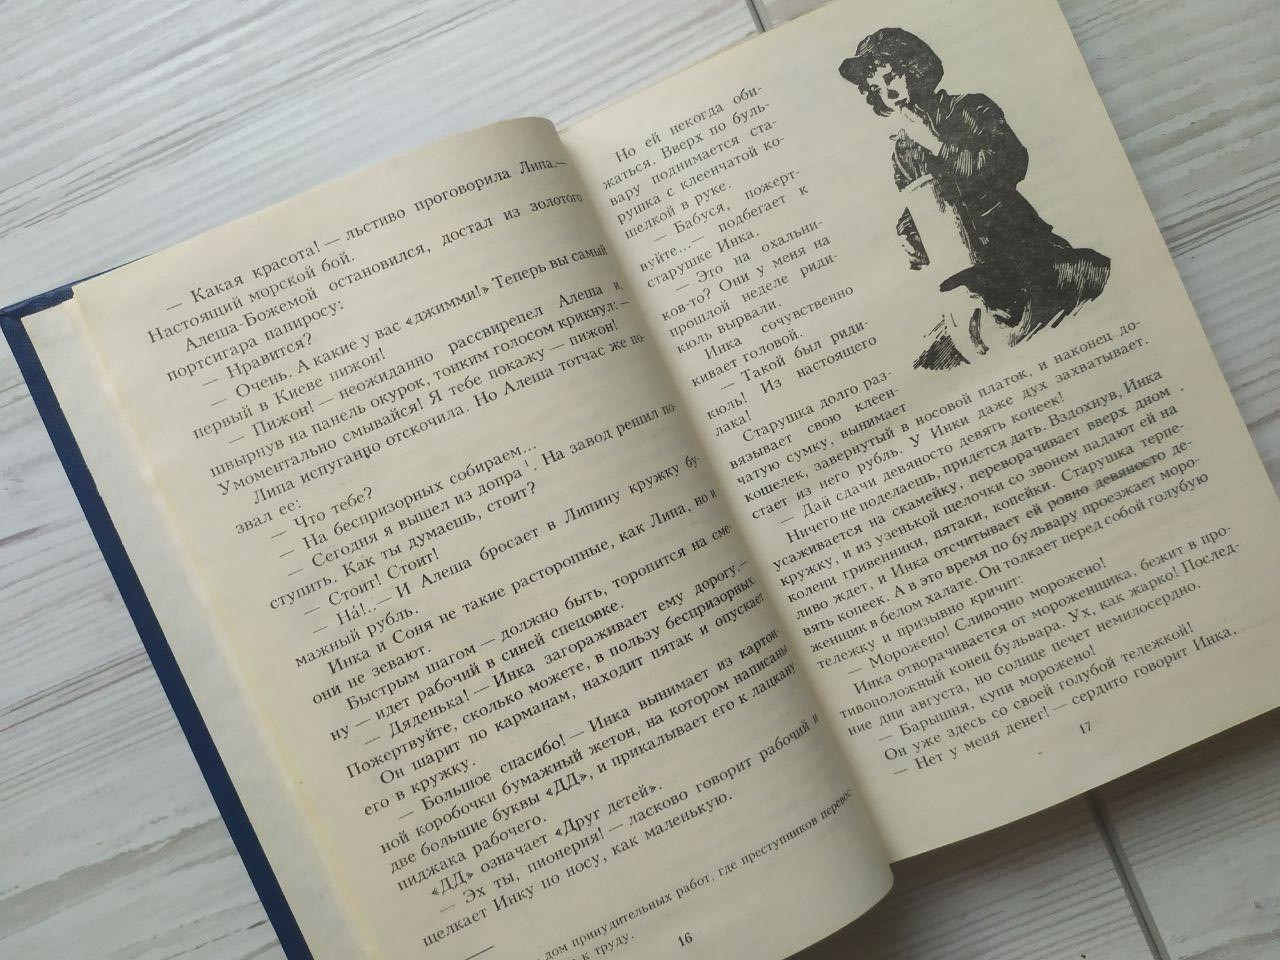 — Какая красота! — льстиво проговорила Липа.—
Настоящий морской бой.
Алеша-Божемой остановился, достал из золотого
портсигара папиросу:
— Нравится?
— Очень. А какие у вас «джимми!» Теперь вы самый
первый в Киеве пижон!
— Пижон! — неожиданно рассвирепел Алеша и,
швырнув на панель окурок, тонким голосом крикнул: —
Умоментально смывайся! Я тебе покажу — пижон!
Липа испуганно отскочила. Но Алеша тотчас же по-
звал ее:
— Что тебе?
— На беспризорных собираем...
— Сегодня я вышел из допра¹. На завод решил по-
ступить. Как ты думаешь, стоит?
— Стоит! Стоит!
— На́!..— И Алеша бросает в Липину кружку бу-
мажный рубль.
Инка и Соня не такие расторопные, как Липа, но и
они не зевают.
Быстрым шагом — должно быть, торопится на сме-
ну — идет рабочий в синей спецовке.
— Дяденька! — Инка загораживает ему дорогу.—
Пожертвуйте, сколько можете, в пользу беспризорных
Он шарит по карманам, находит пятак и опускает
его в кружку.
— Большое спасибо! — Инка вынимает из картон-
ной коробочки бумажный жетон, на котором написаны
две большие буквы «ДД», и прикалывает его к лацкану
пиджака рабочего.
«ДД» означает «Друг детей».
— Эх ты, пионерия! — ласково говорит рабочий и
щелкает Инку по носу, как маленькую.
дом принудительных работ, где преступников перевос
к труду.
16
Но ей некогда оби-
жаться. Вверх по буль-
вару поднимается ста-
рушка с клеенчатой ко-
шелкой в руке.
— Бабуся, пожерт-
вуйте...— подбегает к
старушке Инка.
— Это на охальни-
ков-то? Они у меня на
прошлой неделе риди-
кюль вырвали.
Инка сочувственно
кивает головой.
— Такой был риди-
кюль! Из настоящего
лака!
Старушка долго раз-
вязывает свою клеен-
чатую сумку, вынимает
кошелек, завернутый в носовой платок, и наконец до-
стает из него рубль. У Инки даже дух захватывает.
— Дай сдачи девяносто девять копеек!
Ничего не поделаешь, придется дать. Вздохнув, Инка
усаживается на скамейку, переворачивает вверх дном
кружку, и из узенькой щелочки со звоном падают ей на
колени гривенники, пятаки, копейки. Старушка терпе-
ливо ждет, и Инка отсчитывает ей ровно девяносто де-
вять копеек. А в это время по бульвару проезжает моро-
женщик в белом халате. Он толкает перед собой голубую
тележку и призывно кричит:
— Морожено! Сливочно морожено!
Инка отворачивается от мороженщика, бежит в про-
тивоположный конец бульвара. Ух, как жарко! Послед-
ние дни августа, но солнце печет немилосердно.
— Барышня, купи морожено!
Он уже здесь со своей голубой тележкой!
— Нет у меня денег! — сердито говорит Инка.
17